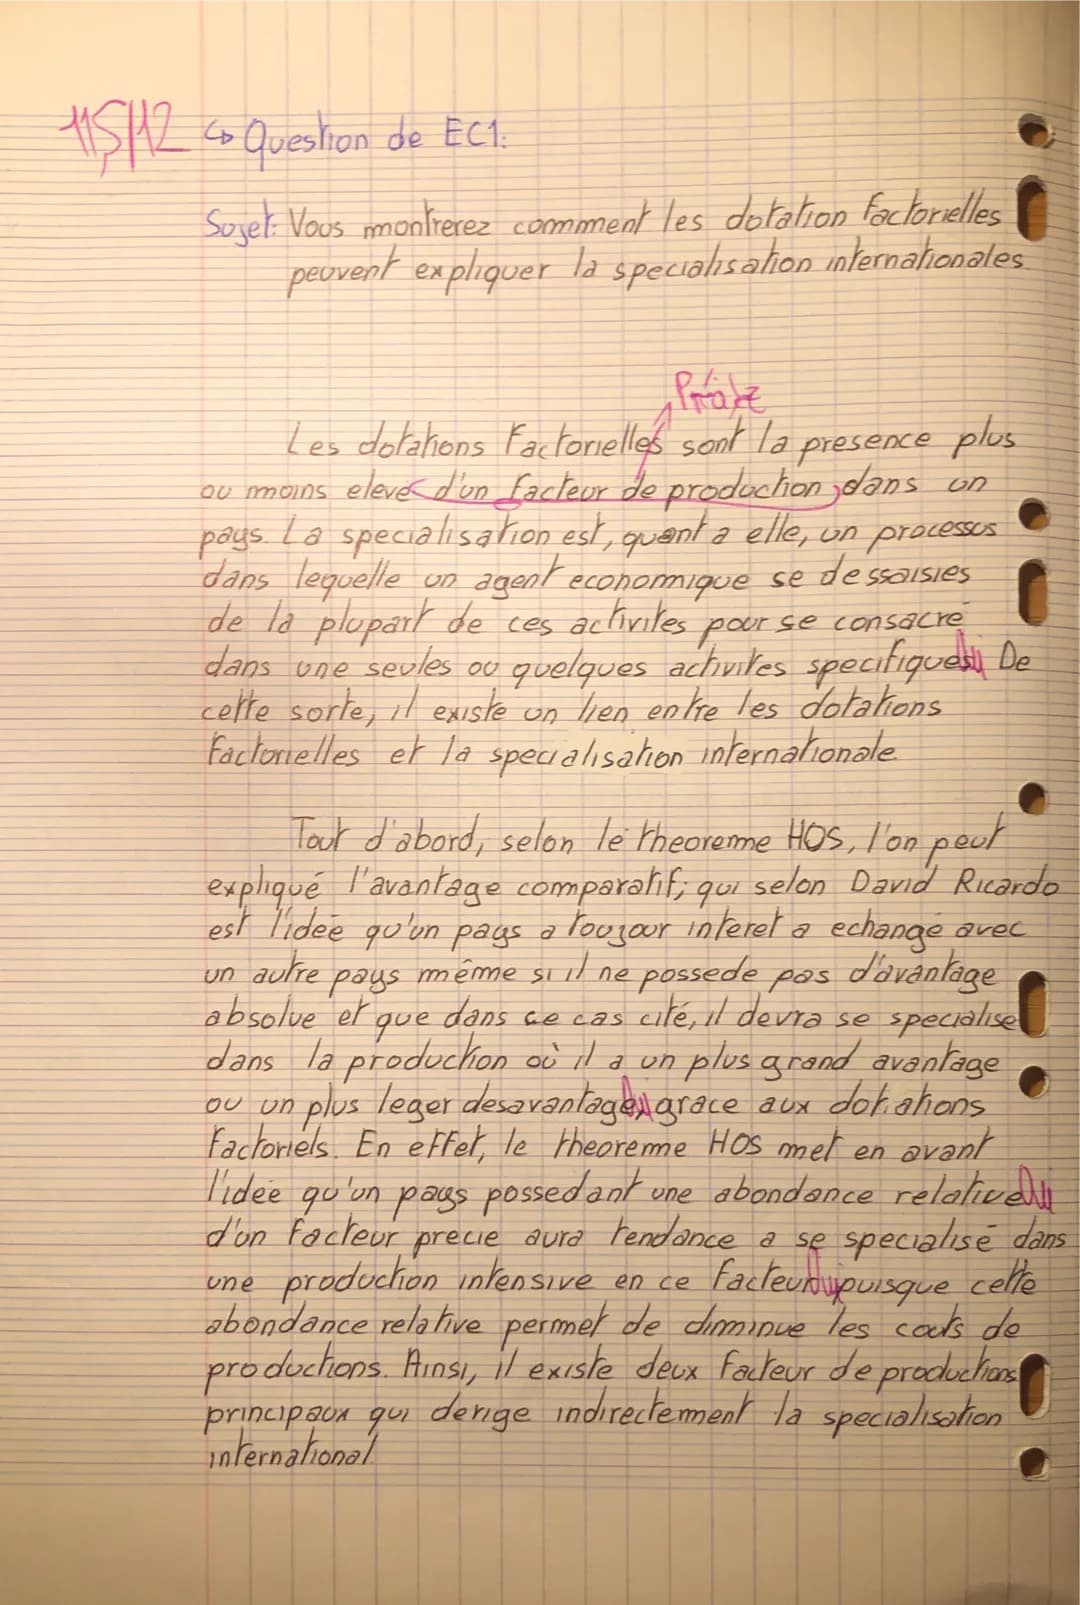 11,5/12 ↳ Question de EC1:
Sujet: Vous montrerez comment les dotation factorielles
peuvent expliquer la specialisation internationales.
Les dotations factorielles sont la presence plus
ou moins elevé d'un facteur de production, dans un
pays. La specialisation est, quant a elle, un processus
dans lequelle un agent economique se dessaisies
de la plupart de ces activites pour se consacré
dans une seules ou quelques activites specifiques. De
cette sorte, il existe un lien entre les dotations
factorielles et la specialisation internationale.
Tout d'abord, selon le theoreme HOS, l'on peut
expliqué l'avantage comparatif; qui selon David Ricardo
est l'idée qu'un pays a toujour interet a echangé avec
un autre pays même si il ne possede pas d'avantage
absolue et que dans ce cas cité, il devra se specialise
dans la production où il a un plus grand avantage
ou un plus leger desavantage, grace aux dotations
factoriels. En effet, le theoreme HOS met en avant
l'idée qu'un pays possedant une abondance relative
d'un facteur precie aura tendance a se specialisé dans
une production intensive en ce facteur puisque cette
abondance relative permet de diminue les couts de
productions. Ainsi, il existe deux facteur de productions
principaux qui derige indirectement la specialisation
international.